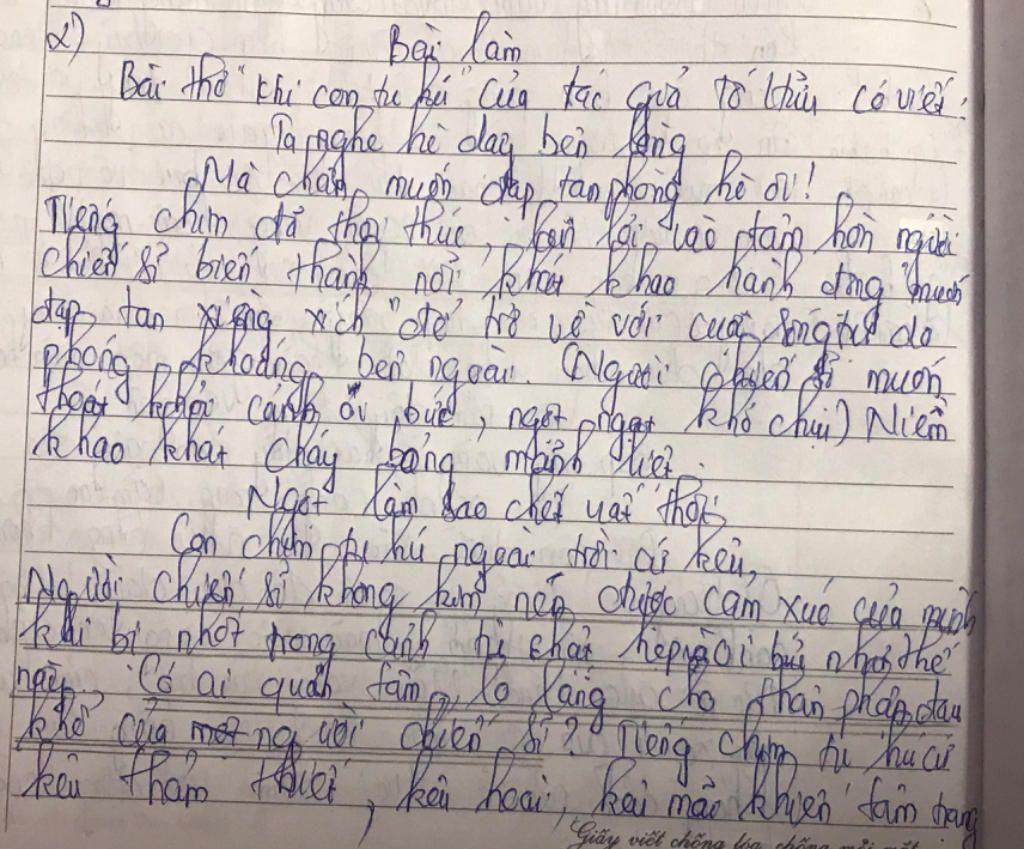 2) Bài làm
Bài thơ "khi con tu hú" của tác giả Tố Hữu có viết:
Ta nghe hè dậy bên lòng
Mà chân muốn đạp tan phòng hè ôi!
Tiếng chim đã thôi thúc, lao tâm hồn người
chiến sĩ biến thành nỗi khát khao hành động "muốn
đạp tan xiềng xích" để trở về với cuộc sống tự do
phóng khoáng bên ngoài. (Người chiến sĩ muốn
thoát khỏi cảnh oi bức, ngột ngạt khó chịu) Niềm
khao khát cháy bỏng mãnh liệt.
Ngột làm sao chết uất thôi
Con chim tu hú ngoài trời cứ kêu,
Người chiến sĩ không kìm nén được cảm xúc của mình
khi bị nhốt trong cảnh tù chật hẹp và oi bức như thế
này, Có ai quan tâm, lo lắng cho thân phận đau
khổ của một người chiến sĩ? Tiếng chim tu hú cứ
kêu thảm thiết, kêu hoài, kêu mãi khiến tâm trạng
Giấy viết chống lóa chống mỏi mắt